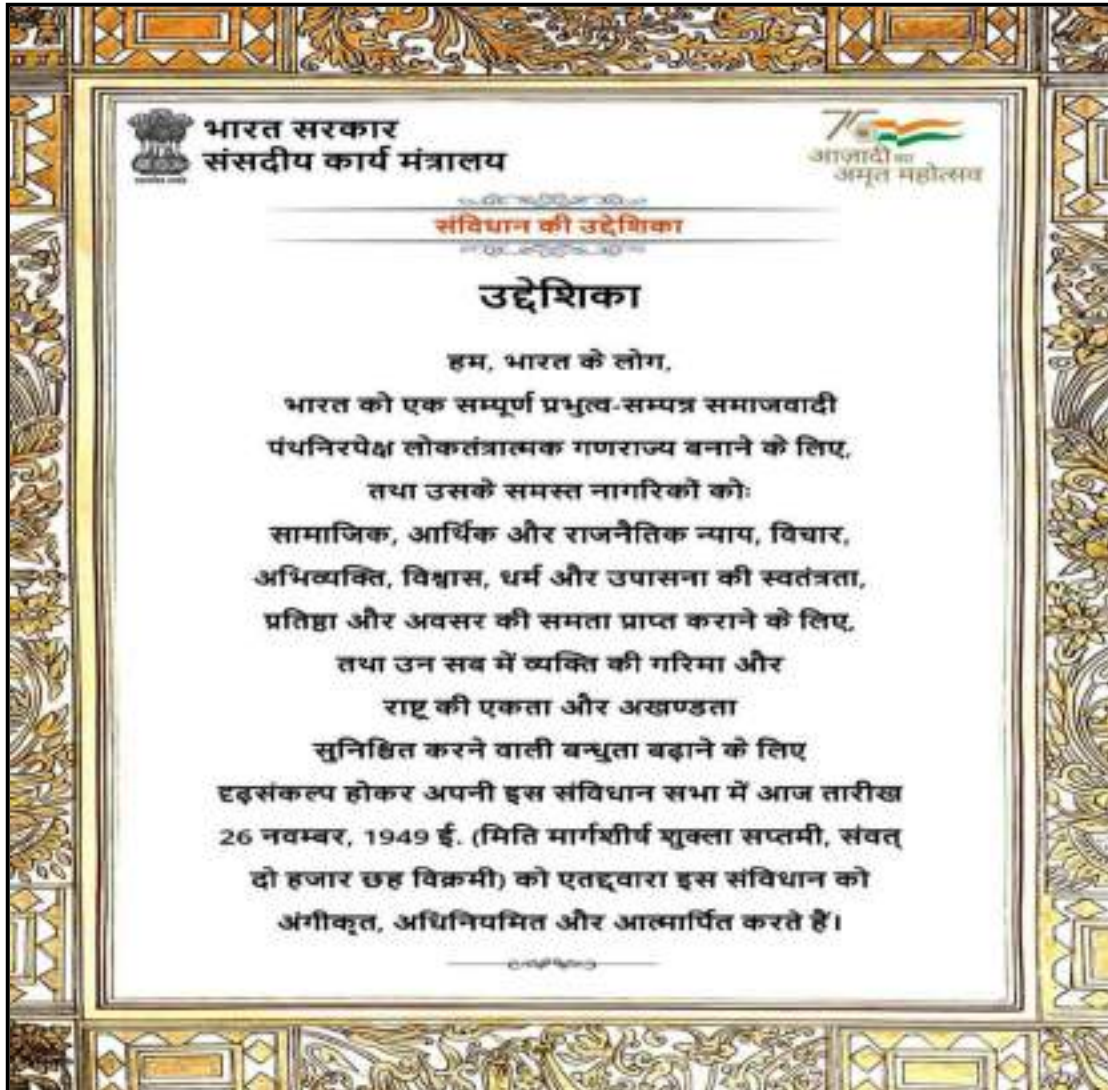 भारत सरकार
संसदीय कार्य मंत्रालय
आज़ादी का
अमृत महोत्सव
संविधान की उद्देशिका
उद्देशिका
हम, भारत के लोग,
भारत को एक सम्पूर्ण प्रभुत्व-सम्पन्न समाजवादी
पंथनिरपेक्ष लोकतंत्रात्मक गणराज्य बनाने के लिए,
तथा उसके समस्त नागरिकों को:
सामाजिक, आर्थिक और राजनैतिक न्याय, विचार,
अभिव्यक्ति, विश्वास, धर्म और उपासना की स्वतंत्रता,
प्रतिष्ठा और अवसर की समता प्राप्त कराने के लिए,
तथा उन सब में व्यक्ति की गरिमा और
राष्ट्र की एकता और अखण्डता
सुनिश्चित करने वाली बन्धुता बढ़ाने के लिए
दृढ़संकल्प होकर अपनी इस संविधान सभा में आज तारीख
26 नवम्बर, 1949 ई. (मिति मार्गशीर्ष शुक्ला सप्तमी, संवत्
दो हजार छह विक्रमी) को एतद्द्वारा इस संविधान को
अंगीकृत, अधिनियमित और आत्मार्पित करते हैं।